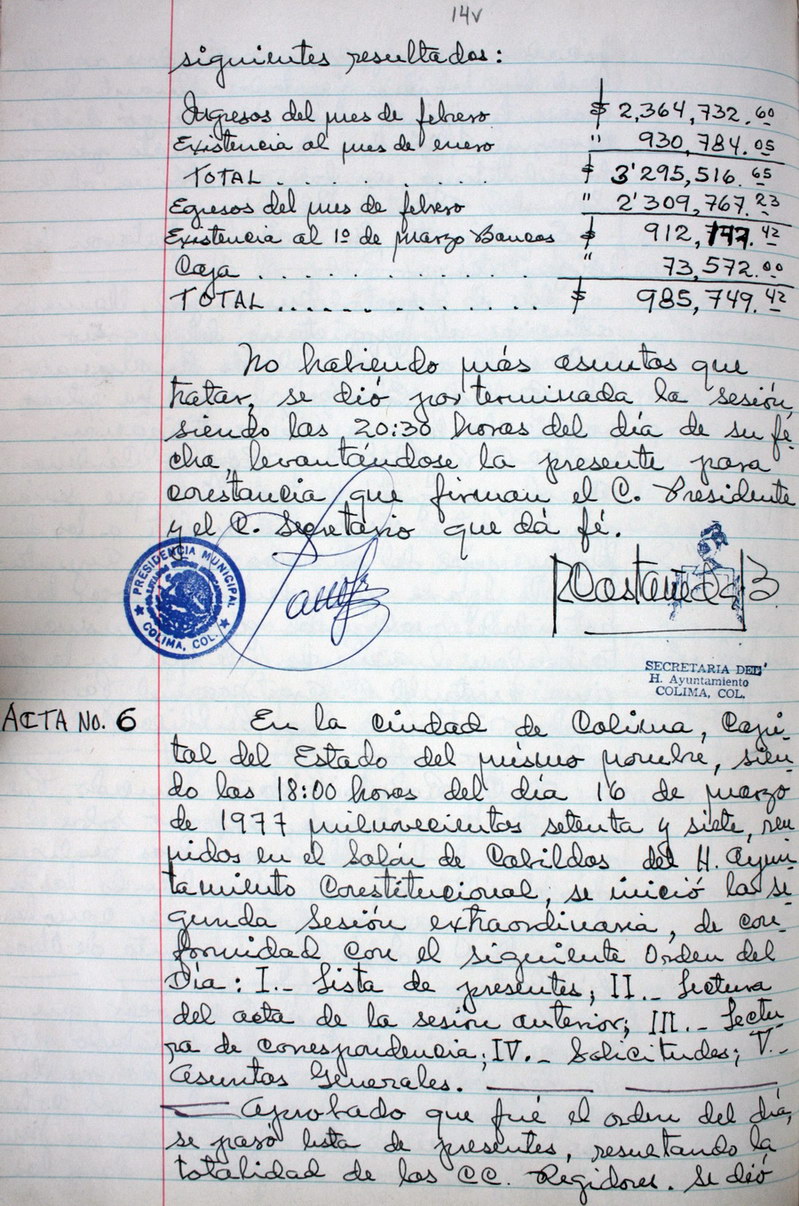 14v
siguientes resultados:
Ingresos del mes de febrero $ 2,364,732.60
Existencia al mes de enero " 930,784.05
TOTAL . . . . . . . . . $ 3'295,516.65
Egresos del mes de febrero " 2'309,767.23
Existencia al 1º de marzo Bancos $ 912,177.42
Caja . . . . . . . . . . . " 73,572.00
TOTAL . . . . . . . . . . . $ 985,749.42
No habiendo más asuntos que
tratar, se dió por terminada la sesión,
siendo las 20:30 horas del día de su fe
cha, levantándose la presente para
constancia que firman el C. Presidente
y el C. Secretario que dá fé.
PRESIDENCIA MUNICIPAL
COLIMA, COL.
SECRETARIA DEL
H. Ayuntamiento
COLIMA, COL.
ACTA No. 6 En la ciudad de Colima, Capi-
tal del Estado del mismo nombre, sien-
do las 18:00 horas del día 16 de marzo
de 1977 milnovecientos setenta y siete, reu
nidos en el Salón de Cabildos del H. Ayun-
tamiento Constitucional, se inició la se-
gunda Sesión extraordinaria, de con-
formidad con el siguiente Orden del
Día: I.- Lista de presentes; II.- Lectura
del acta de la sesión anterior; III.- Lectu-
ra de correspondencia; IV.- Solicitudes; V.-
Asuntos Generales.
Aprobado que fué el orden del día,
se pasó lista de presentes, resultando la
totalidad de los CC. Regidores. Se dió